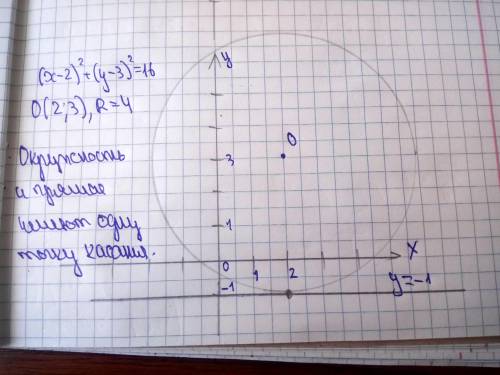 (x-2)²+(y-3)²=16
O(2;3), R=4
Окружность
и прямая
имеют одну
точку касания.
y
O
3
1
0
1
2
X
-1
y=-1